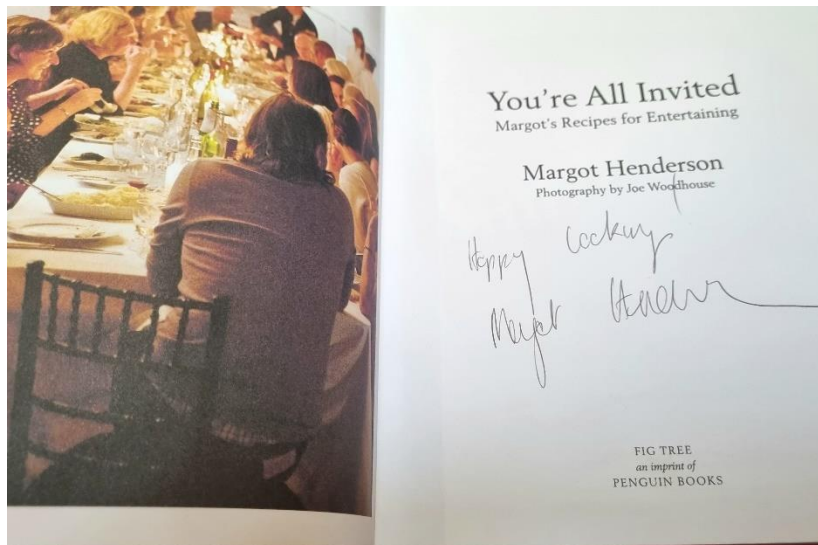 You're All Invited
Margot's Recipes for Entertaining
Margot Henderson
Photography by Joe Woodhouse
Happy Cooking
Margot Henderson
FIG TREE
an imprint of
PENGUIN BOOKS